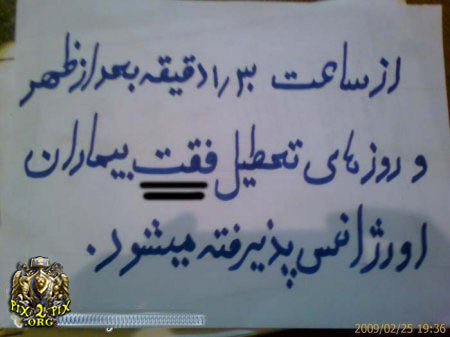 از ساعت ۱/۳۰ دقیقه بعد از ظهر
و روزهای تعطیل فقت بیماران
اورژانس پذیرفته میشود.
PIX2PIX
.ORG
2009/02/25 19:36